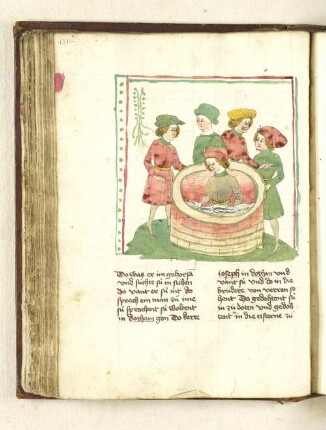 Do was er im gehorsa
vnd suchte si in sichen
Do vant er si nit do
sprach ein man zu ime
si sprachent si woltent
in dothaim gon Do kerte
ioseph in dothim vnd
vant si vnd do in die
brudere von verren so
hent Do gedohtent si
in zu doten vnd gedoh
tent in die cisterne zu